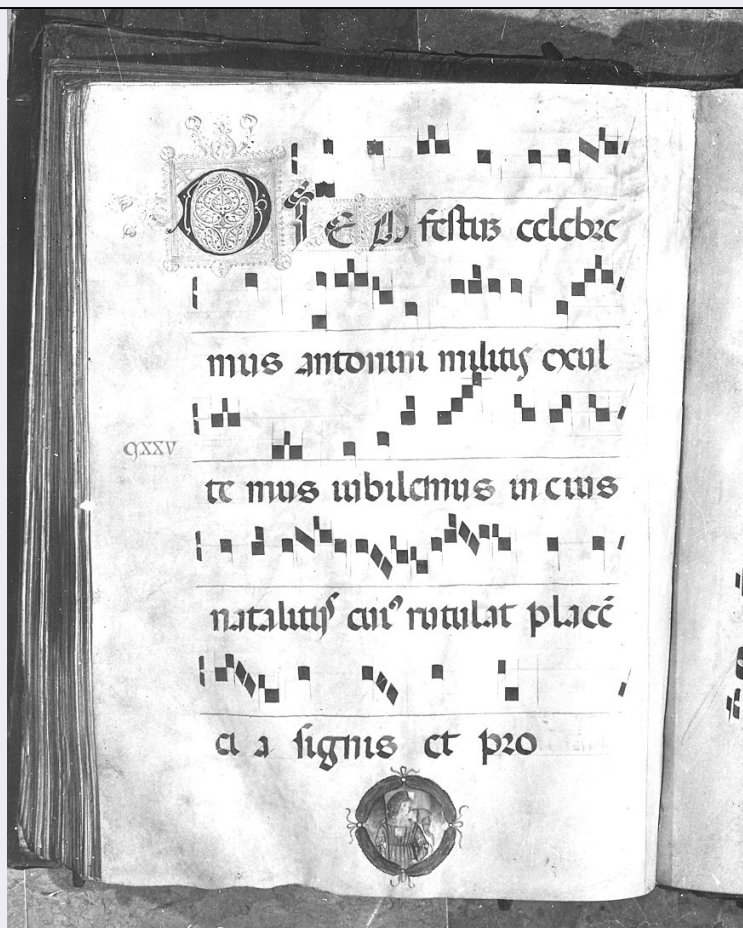 DIEM festum celebre
mus antonini militis exul
te mus iubilemus in eius
CXXV
natalitijs cui⁹ rutilat placē
ci a signis et pro